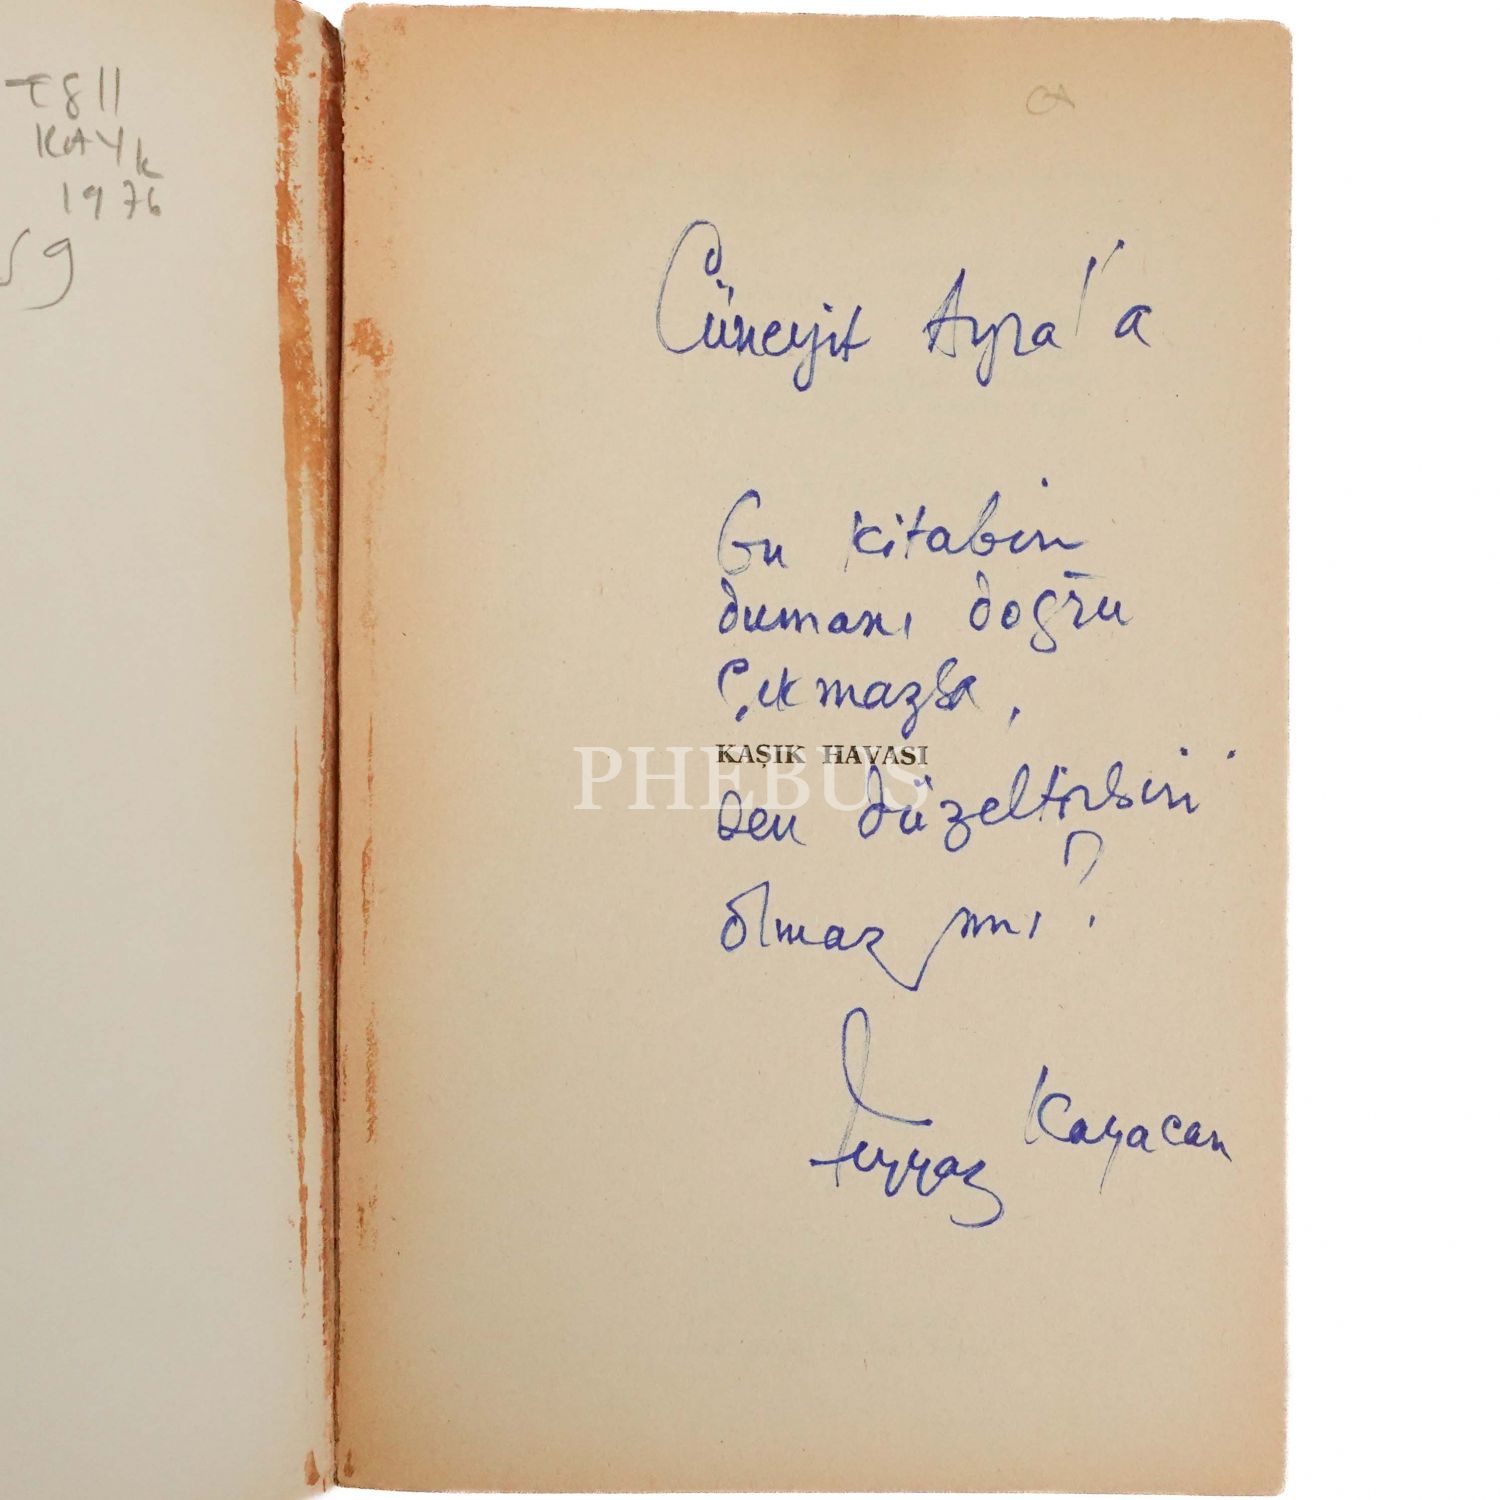 T811
KAYK
1976
59
Cüneyit Ayra'a
Bu kitabın
dumanı doğru
çıkmazsa,
KAŞIK HAVASI
PHEBUS
sen düzeltirsin
olmaz mı?
Feyyaz Kayacan